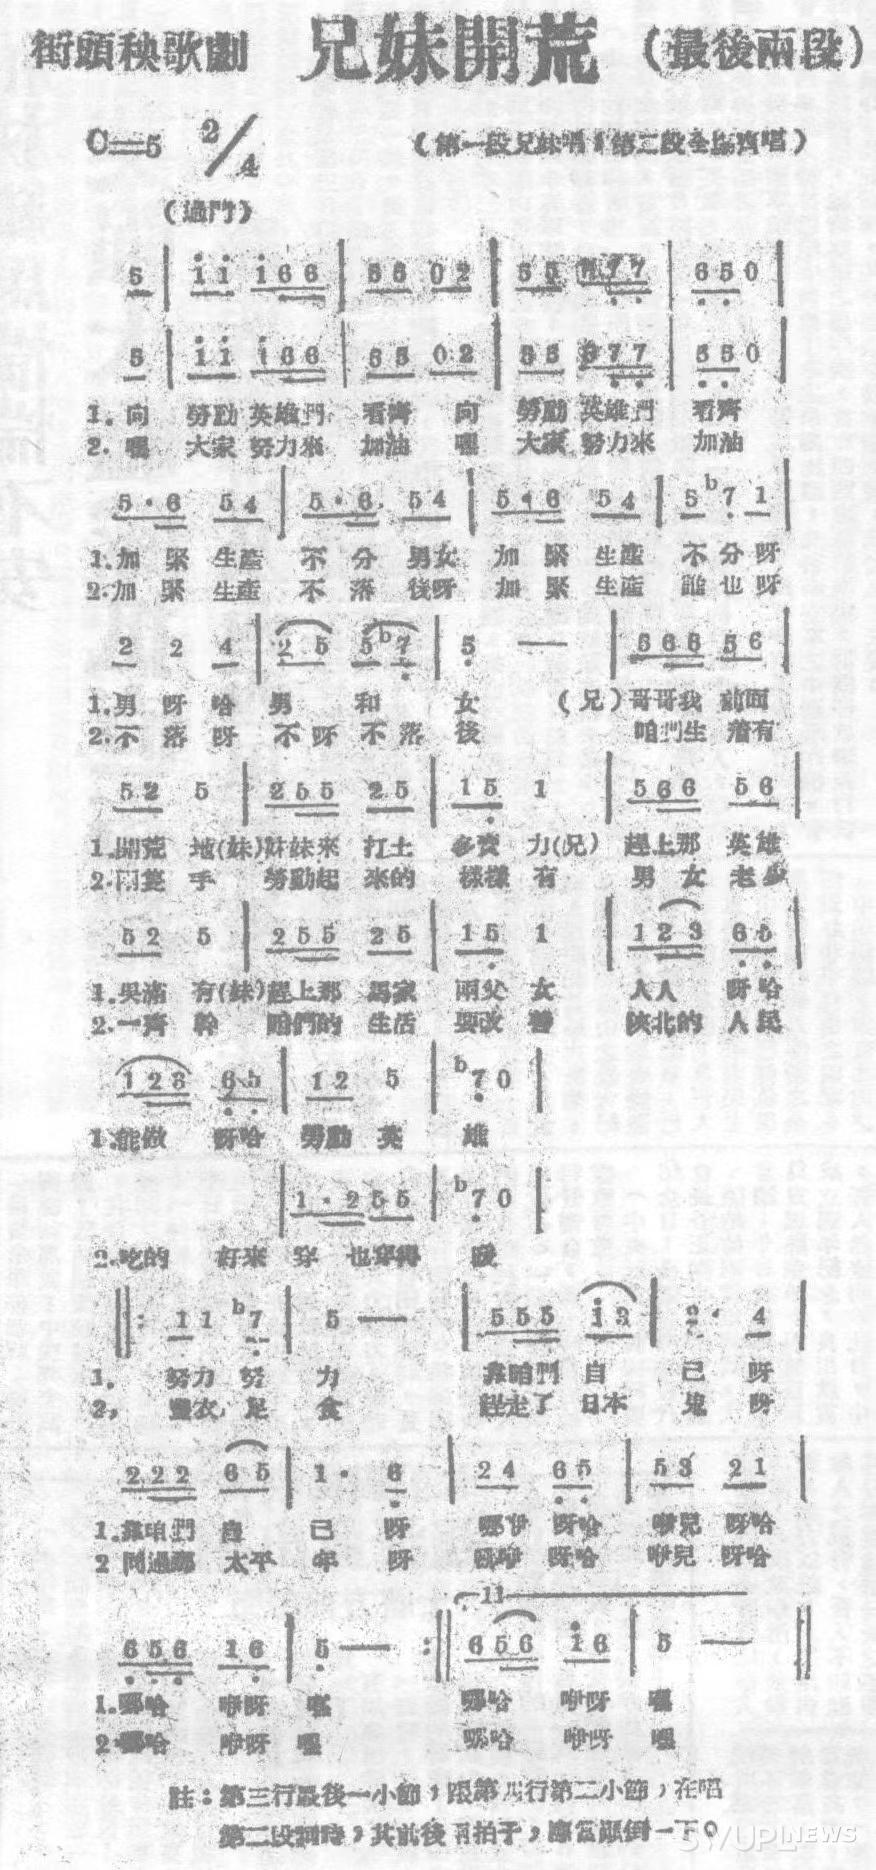 街頭秧歌劇 兄妹開荒 (最後兩段)
C=5 2/4 (第一段兄妹唱,第二段全場齊唱)
(過門)
5 | i i i 6 6 | 5 6 0 2 | 5 5 7 7 | 6 5 0 |
5 | i i i 6 6 | 5 5 0 2 | 5 5 6 7 7 | 5 5 0 |
1.向 勞動 英雄們 看齊 向 勞動 英雄們 看齊
2.嘿 大家 努力來 加油 嘿 大家 努力來 加油
5·6 5 4 | 5·6 5 4 | 5·6 5 4 | 5 b7 1 |
1.加 緊 生產 不 分 男女 加 緊 生產 不 分 呀
2.加 緊 生產 不 落 後呀 加 緊 生產 誰 也 呀
2 2 4 | 2 5 5 b7 | 5 — | 5 6 6 5 6 |
1.男 呀 哈 男 和 女 (兄)哥哥我 前面
2.不 落 呀 不 呀 不 落 後 咱們生 落有
5 2 5 | 2 5 5 2 5 | 1 5 1 | 5 6 6 5 6 |
1.開荒 地(妹)妹妹來 打土 多賣 力(兄) 趕上那 英雄
2.兩隻 手 勞動起 來的 樣樣 有 男 女 老少
5 2 5 | 2 5 5 2 5 | 1 5 1 | 1 2 3 6 5 |
1.吳滿 有(妹)趕上那 馬家 兩父 女 人人 呀哈
2.一齊 幹 咱們的 生活 要改 善 陝北的 人民
1 2 3 6 5 | 1 2 5 | b7 0 |
1.能做 呀哈 勞動 英 雄
| 1·2 5 5 | b7 0 |
2.吃的 好來 穿 也穿得 暖
‖: 1 1 b7 | 5 — | 5 5 5 i 3 | 2· 4 |
1. 努力 努 力 靠咱們 自 己 呀
2, 豐衣 足 食 趕走了 日本 鬼 呀
2 2 2 6 5 | 1· 6 | 2 4 6 5 | 5 3 2 1 |
1.靠咱們 自 己 呀 哪咿 呀哈 咿兒 呀哈
2 同過那 太平 年 呀 哪咿 呀哈 咿兒 呀哈
11
6 5 6 1 6 | 5 — :‖ 6 5 6 i 6 | 5 — ‖
1.哪哈 咿呀 嘿 哪哈 咿呀 嘿
2.哪哈 咿呀 嘿 哪哈 咿呀 嘿
註:第三行最後一小節,跟第四行第二小節,在唱
第二段詞時,其前後兩拍子,應當顛倒一下。
SWUPL NEWS